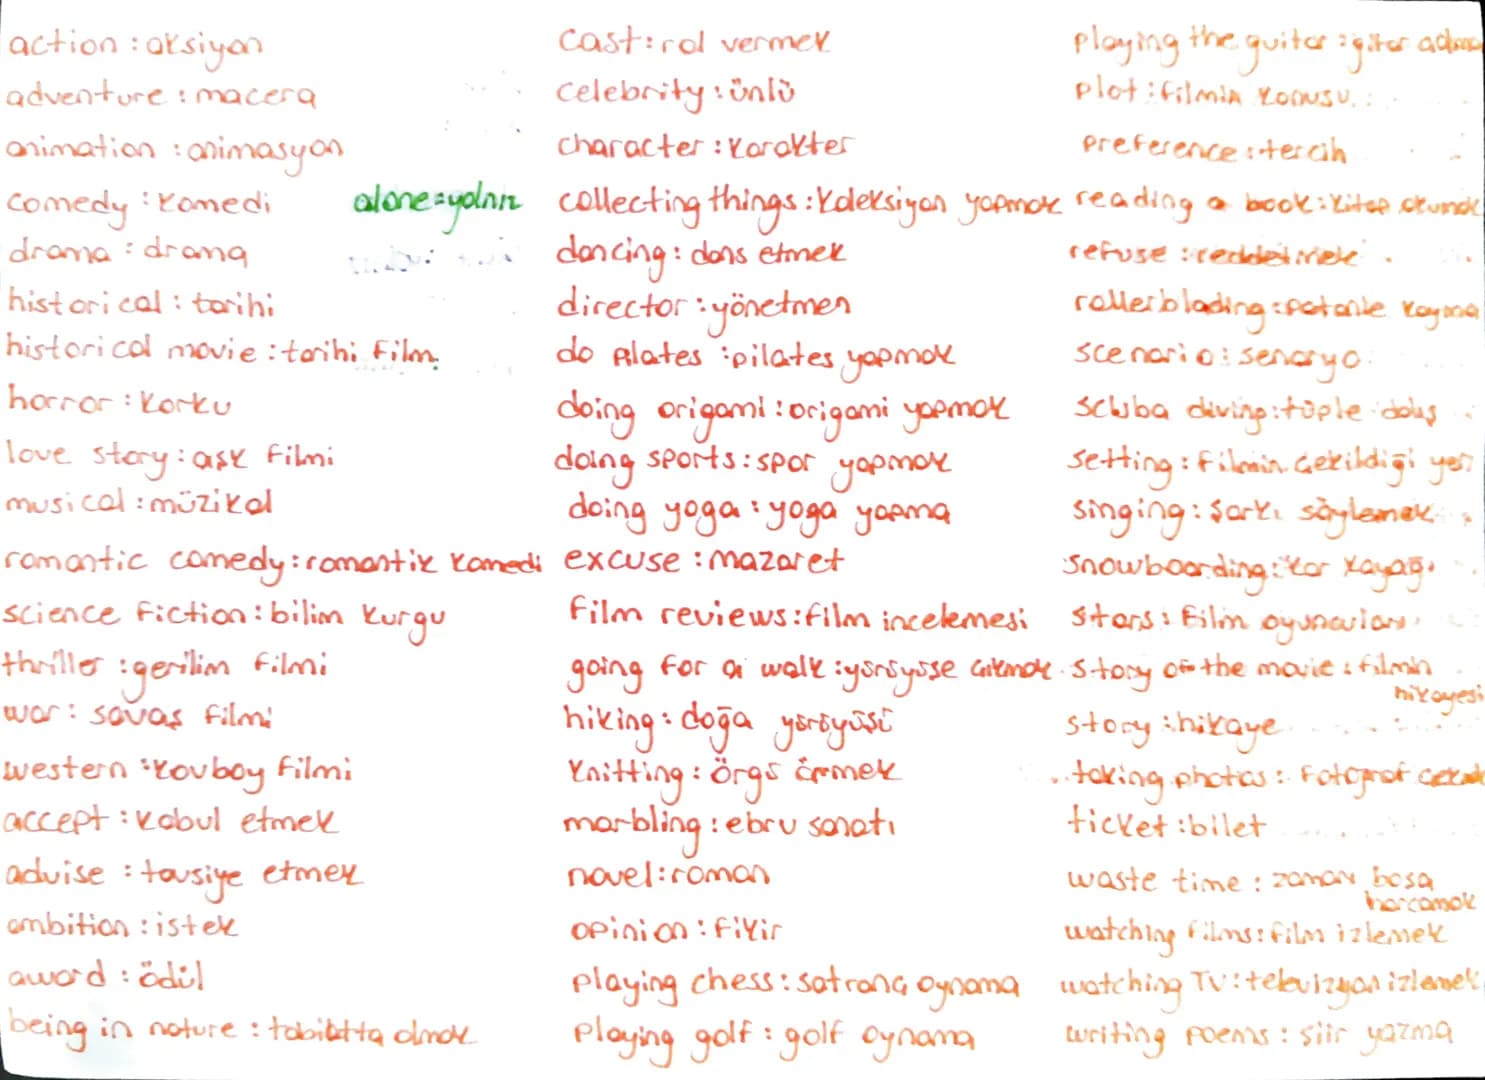 action : aksiyon
adventure : macera
animation : animasyon
comedy : komedi
alone = yalnız
drama : drama
historical : tarihi
historical movie : tarihi film
horror : korku
love story : aşk filmi
musical : müzikal
romantic comedy : romantik komedi
science fiction : bilim kurgu
thriller : gerilim filmi
war : savaş filmi
western : kovboy filmi
accept : kabul etmek
advise : tavsiye etmek
ambition : istek
award : ödül
being in nature : tabiatta olmak
cast : rol vermek
celebrity : ünlü
character : karakter
collecting things : koleksiyon yapmak
dancing : dans etmek
director : yönetmen
do pilates : pilates yapmak
doing origami : origami yapmak
doing sports : spor yapmak
doing yoga : yoga yapma
excuse : mazaret
film reviews : film incelemesi
going for a walk : yürüyüşe çıkmak
hiking : doğa yürüyüşü
knitting : örgü örmek
marbling : ebru sanatı
novel : roman
opinion : fikir
playing chess : satranç oynama
playing golf : golf oynama
playing the guitar : gitar
plot : filmin konusu
preference : tercih
reading a book : kitap okumak
refuse : reddetmek
rollerblading : patenle kayma
scenario : senaryo
scuba diving : tüple dalış
setting : filmin çekildiği yer
singing : şarkı söylemek
snowboarding : kar kayağı
stars : film oyuncuları
story of the movie : filmin
hikayesi
story : hikaye
taking photos : fotoğraf
ticket : bilet
waste time : zamanı boşa
harcamak
watching films : film izlemek
watching TV : televizyon izlemek
writing poems : şiir yazma